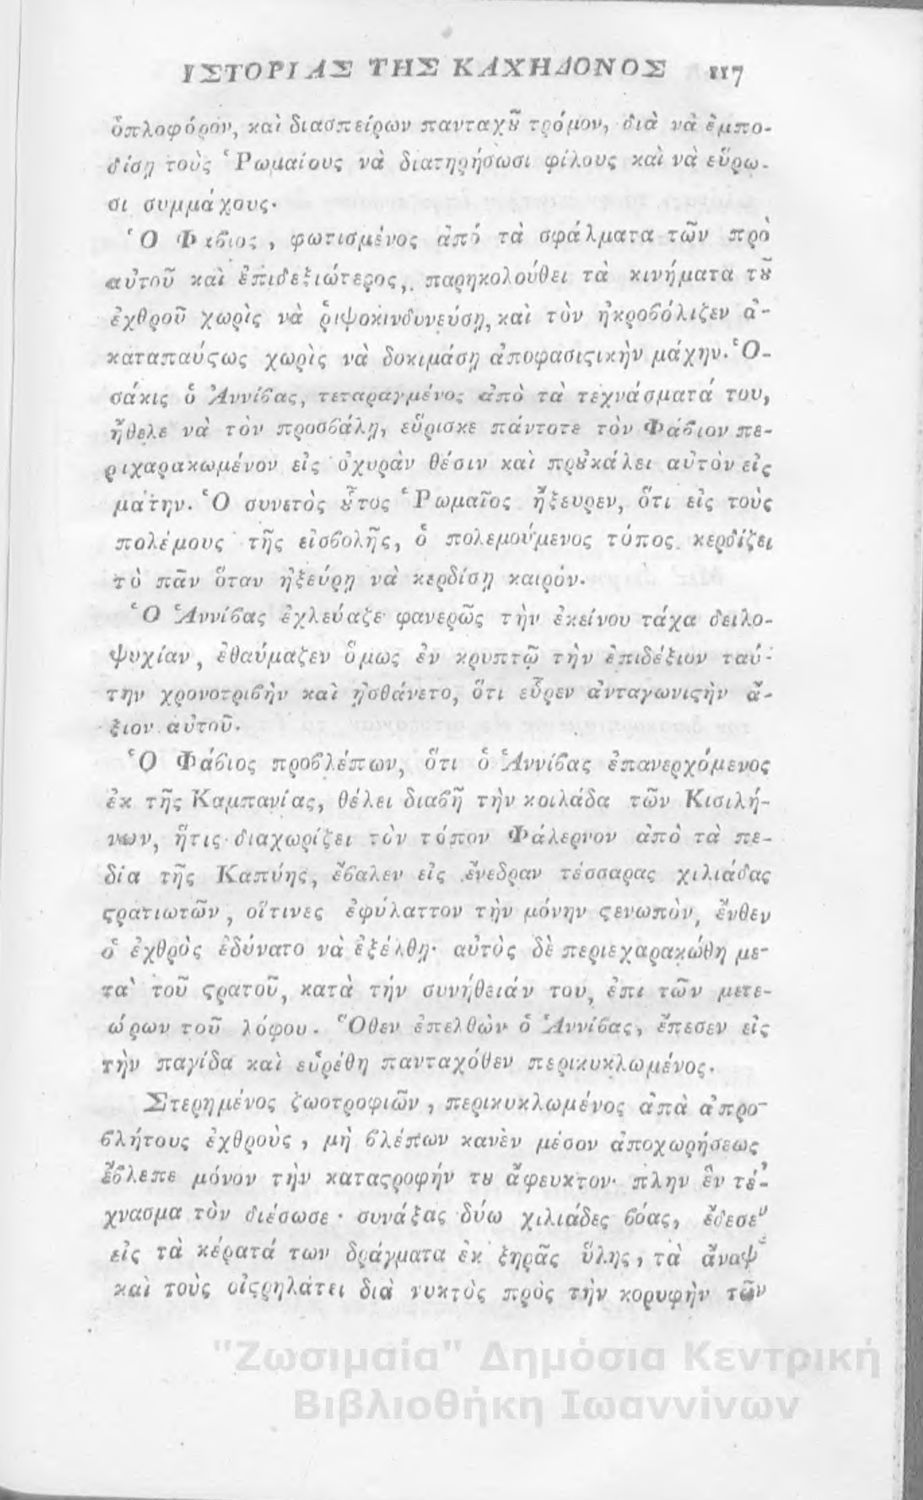 ΙΣΤΟΡΙΑΣ ΤΗΣ ΚΑΧΗΔΟΝΟΣ 117
ὁπλοφόρον, καὶ διασπείρων πανταχȣ͂ τρόμον, διὰ νὰ ἐμπο-
δίσῃ τοὺς Ῥωμαίους νὰ διατηρήσωσι φίλους καὶ νὰ εὕρω-
σι συμμάχους·
Ὁ Φάβιος, φωτισμένος ἀπὸ τὰ σφάλματα τῶν πρὸ
αὐτοῦ καὶ ἐπιδεξιώτερος, παρηκολούθει τὰ κινήματα τȣ͂
ἐχθροῦ χωρὶς νὰ ῥιψοκινδυνεύσῃ, καὶ τὸν ἠκροβόλιζεν ἀ-
καταπαύςως χωρὶς νὰ δοκιμάσῃ ἀποφασιςικὴν μάχην. Ὁ-
σάκις ὁ Ἀννίβας, τεταραγμένος ἀπὸ τὰ τεχνάσματά του,
ἤθελε νὰ τὸν προσβάλῃ, εὕρισκε πάντοτε τὸν Φάβιον πε-
ριχαρακωμένον εἰς ὀχυρὰν θέσιν καὶ πρȣκάλει αὐτὸν εἰς
μάτην. Ὁ συνετὸς ȣ̃τος Ῥωμαῖος ἤξευρεν, ὅτι εἰς τοὺς
πολέμους τῆς εἰσβολῆς, ὁ πολεμούμενος τόπος κερδίζει
τὸ πᾶν ὅταν ἠξεύρῃ νὰ κερδίσῃ καιρόν.
Ὁ Ἁννίβας ἐχλεύαζε φανερῶς τὴν ἐκείνου τάχα δειλο-
ψυχίαν, ἐθαύμαζεν ὅμως ἐν κρυπτῷ τὴν ἐπιδέξιον ταύ-
την χρονοτριβὴν καὶ ᾐσθάνετο, ὅτι εὗρεν ἀνταγωνιςὴν ἄ-
ξιον αὐτοῦ.
Ὁ Φάβιος προβλέπων, ὅτι ὁ Ἁννίβας ἐπανερχόμενος
ἐκ τῆς Καμπανίας, θέλει διαβῆ τὴν κοιλάδα τῶν Κισιλή-
νων, ἥτις διαχωρίζει τὸν τόπον Φάλερνον ἀπὸ τὰ πε-
δία τῆς Καπύης, ἔβαλεν εἰς ἔνεδραν τέσσαρας χιλιάδας
ςρατιωτῶν, οἵτινες ἐφύλαττον τὴν μόνην ςενωπὸν, ἔνθεν
ὁ ἐχθρὸς ἐδύνατο νὰ ἐξέλθῃ· αὐτὸς δὲ περιεχαρακώθη με-
τὰ τοῦ ςρατοῦ, κατὰ τὴν συνήθειάν του, ἐπι τῶν μετε-
ώρων τοῦ λόφου. Ὅθεν ἐπελθὼν ὁ Ἁννίβας, ἔπεσεν εἰς
τὴν παγίδα καὶ εὑρέθη πανταχόθεν περικυκλωμένος.
Στερημένος ζωοτροφιῶν, περικυκλωμένος ἀπὰ ἀπρο-
βλήτους ἐχθροὺς, μὴ βλέπων κανὲν μέσον ἀποχωρήσεως
ἔβλεπε μόνον τὴν καταςροφήν τȣ ἄφευκτον· πλην ἓν τέ-
χνασμα τὸν διέσωσε· συνάξας δύω χιλιάδες βόας, ἔδεσεν
εἰς τὰ κέρατά των δράγματα ἐκ ξηρᾶς ὕλης, τὰ ἄναψε
καὶ τοὺς οἰςρηλάτει διὰ νυκτὸς πρὸς τὴν κορυφὴν τῶν
"Ζωσιμαία" Δημόσια Κεντρική
Βιβλιοθήκη Ιωαννίνων